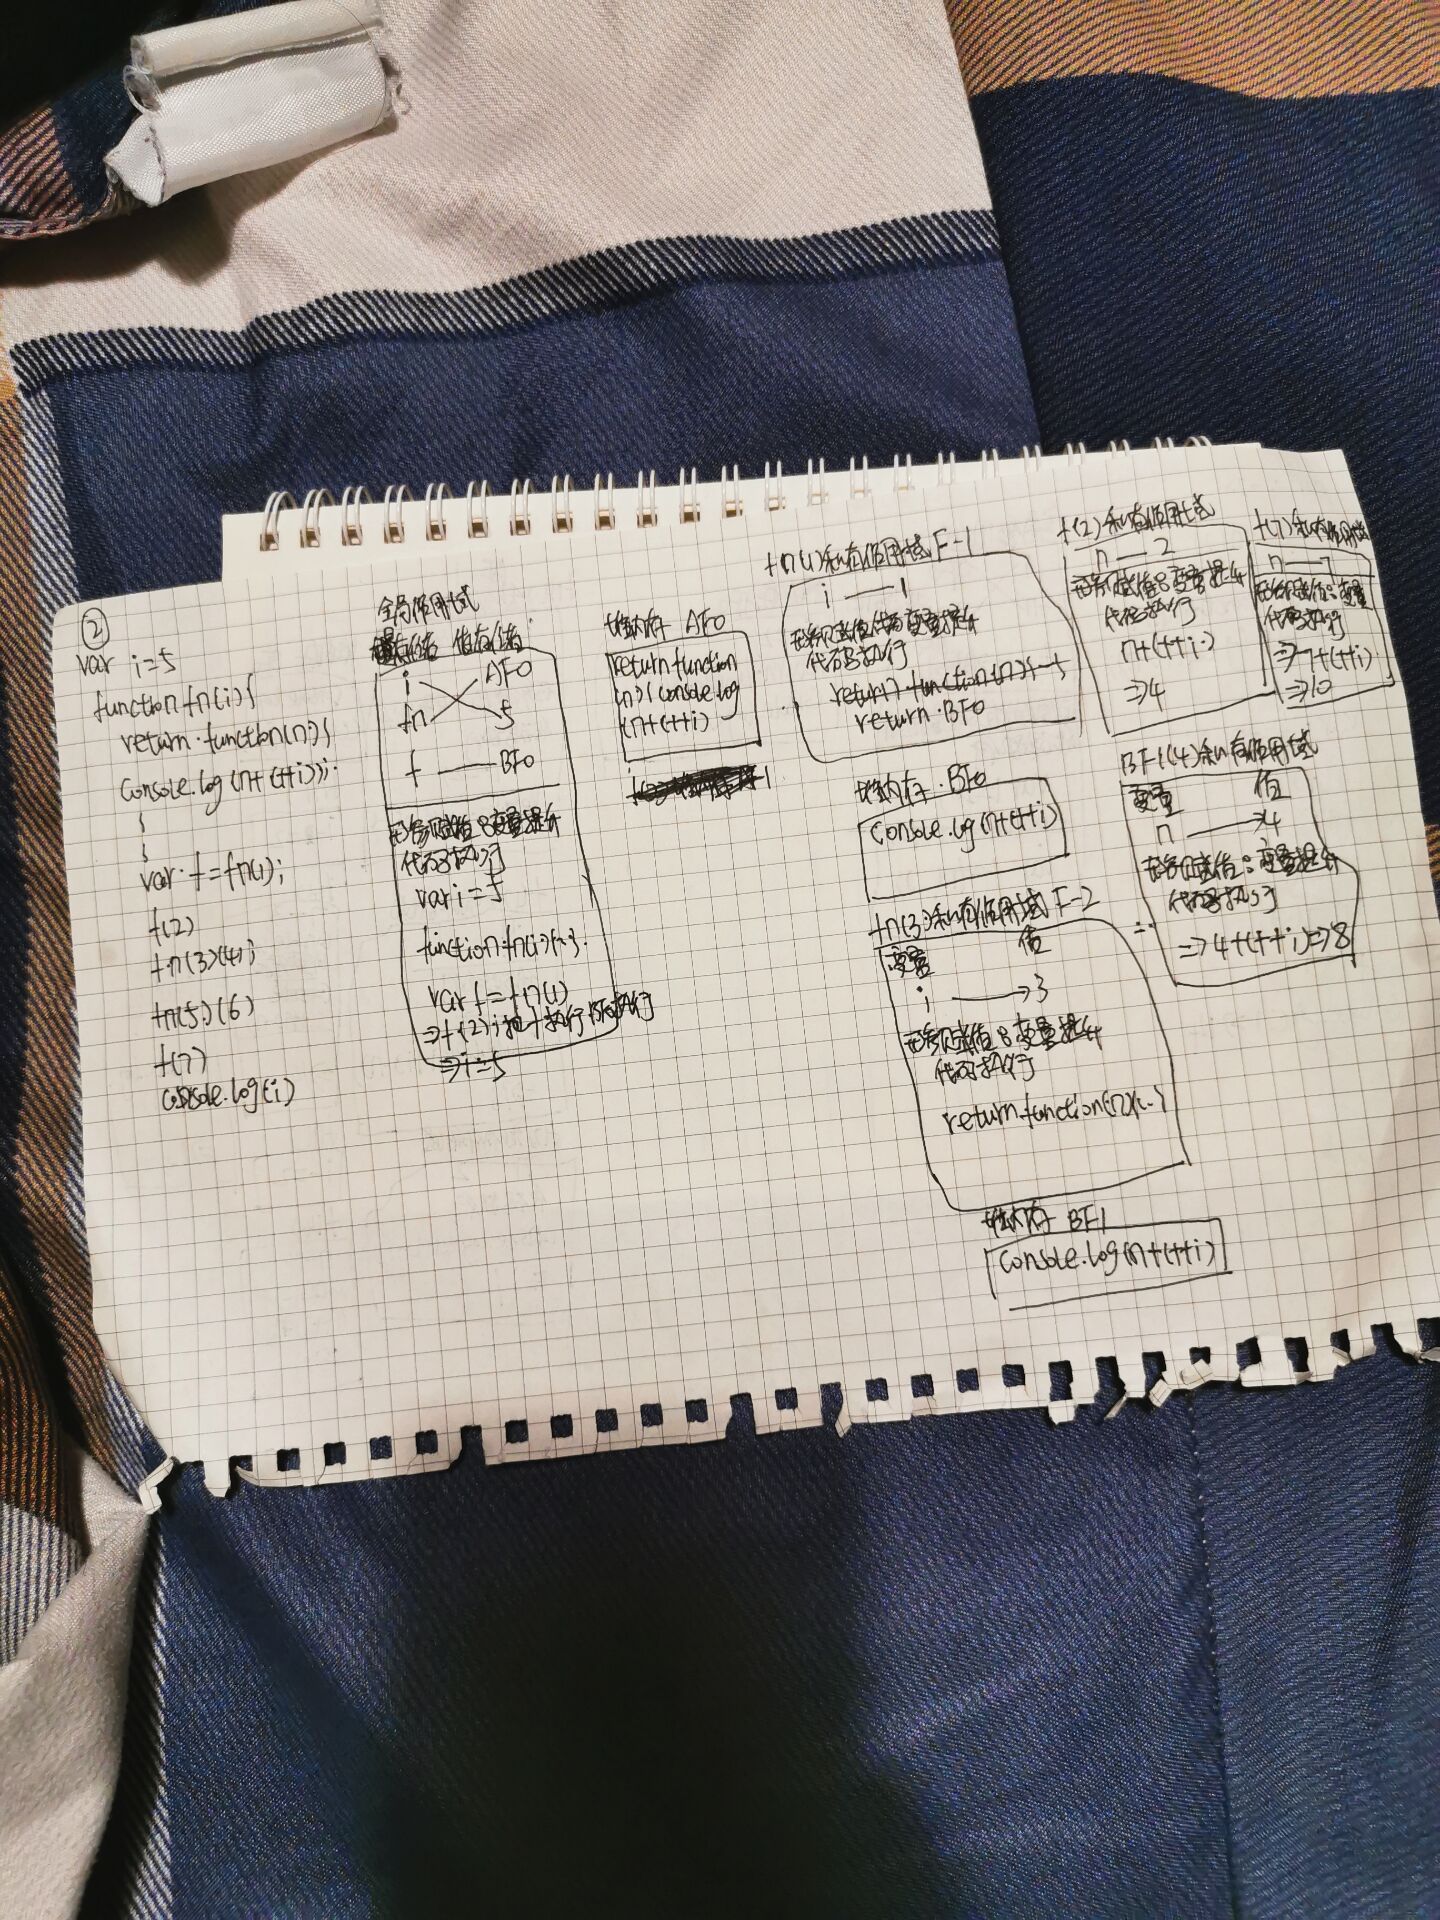 ②
var i=5
function fn(i){
return function(n){
console.log(n+(++i));
}
}
var f=fn(1);
f(2)
fn(3)(4);
fn(5)(6)
f(7)
console.log(i)
全局作用域
值存储
i AF0
fn 5
f —— BF0
形参赋值&变量提升
代码执行
var i=5
function fn(i){~}
var f=fn(1)
⇒f(2);把f执行 BF0执行
⇒i=5
堆内存 AF0
return function
(n){console.log
(n+(++i)
fn(1)私有作用域F-1
i —— 1
形参赋值 变量提升
代码执行
return function(n){~}
return BF0
堆内存 BF0
console.log(n+(++i)
fn(3)私有作用域F-2
变量 值
i ——>3
形参赋值&变量提升
代码执行
return function(n){~}
堆内存 BF1
console.log(n+(++i)
f(2)私有作用域
n — 2
形参赋值&变量提升
代码执行
n+(++i)
⇒4
f(7)私有作用域
n — 7
形参赋值:变量
代码执行
⇒7+(++i)
⇒10
BF1(4)私有作用域
变量 值
n ——>4
形参赋值:变量提升
代码执行
⇒4+(++i)⇒8